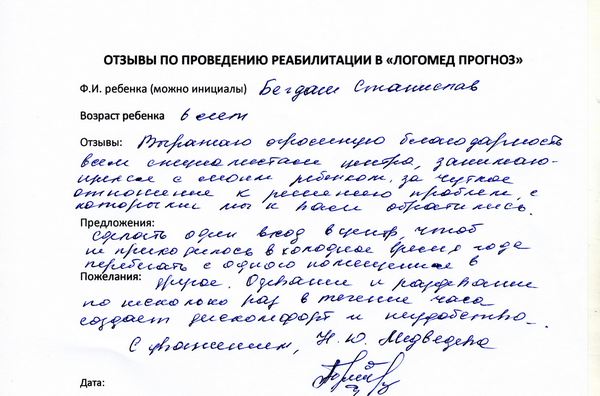 ОТЗЫВЫ ПО ПРОВЕДЕНИЮ РЕАБИЛИТАЦИИ В «ЛОГОМЕД ПРОГНОЗ»
Ф.И. ребенка (можно инициалы) Бегдаш Станислав
Возраст ребенка 6 лет
Отзывы: Выражаю огромную благодарность
всем специалистам центра, занимаю-
щимся с моим ребенком за чуткое
отношение к решению проблем, с
которыми мы к вам обратились.
Предложения:
сделать один вход в центр, чтоб
не приходилось в холодное время года
перебегать с одного помещения в
Пожелания: другое. Одевание и раздевание
по несколько раз в течение часа
создает дискомфорт и неудобство.
С уважением, Н.Ю. Медведева
Дата: